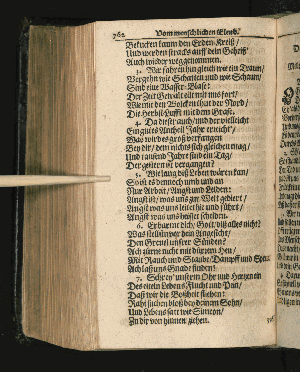 762 Vom menschlichen Elend.
Besuchen kaum den Erden Kreiß/
Und werden stracks auff dein Geheiß/
Auch wieder weggenommen.
3. Wir fahren hin gleich wie ein Traum/
Vergehn wie Schatten und wie Schaum/
Sind eine Wasser-Blase:
Der Zeit Gewalt eilt mit uns fort/
Wie mit den Wolcken thut der Nord/
Die Herbst-Lufft mit dem Grase.
4. Da dieser auch/und der vielleicht
Ein gutes Antheil Jahr erreicht/
Was wird es groß verfangen
Bey dir/dem nichts sich gleichen mag/
Und tausend Jahre sind ein Tag/
Der gestern ist vergangen?
5. Wie lang diß Leben wären kan/
So ist es dennoch umb und an
Nur Arbeit/Angst und Leiden:
Angst ist/was uns zur Welt gebiert/
Angst was uns leitet hie und führt/
Angst was uns heisset scheiden.
6. Erbarmt dich/Gott/diß alles nicht?
Was stellst du vor dein Angesicht
Den Greuel unsrer Sünden?
Ach zürne nicht mit dürrem Heu/
Mit Rauch und Staube/Dampff und Spreu
Ach laß uns Gnade finden!
7. Schrey' unserm Ohr und Hertzen ein
Des eiteln Lebens Flucht und Pein/
Daß wir die Boßheit fliehen:
Nach suchen bloß bey deinem Sohn/
Und Lebens satt wie Simeon/
Zu dir von hinnen ziehen.